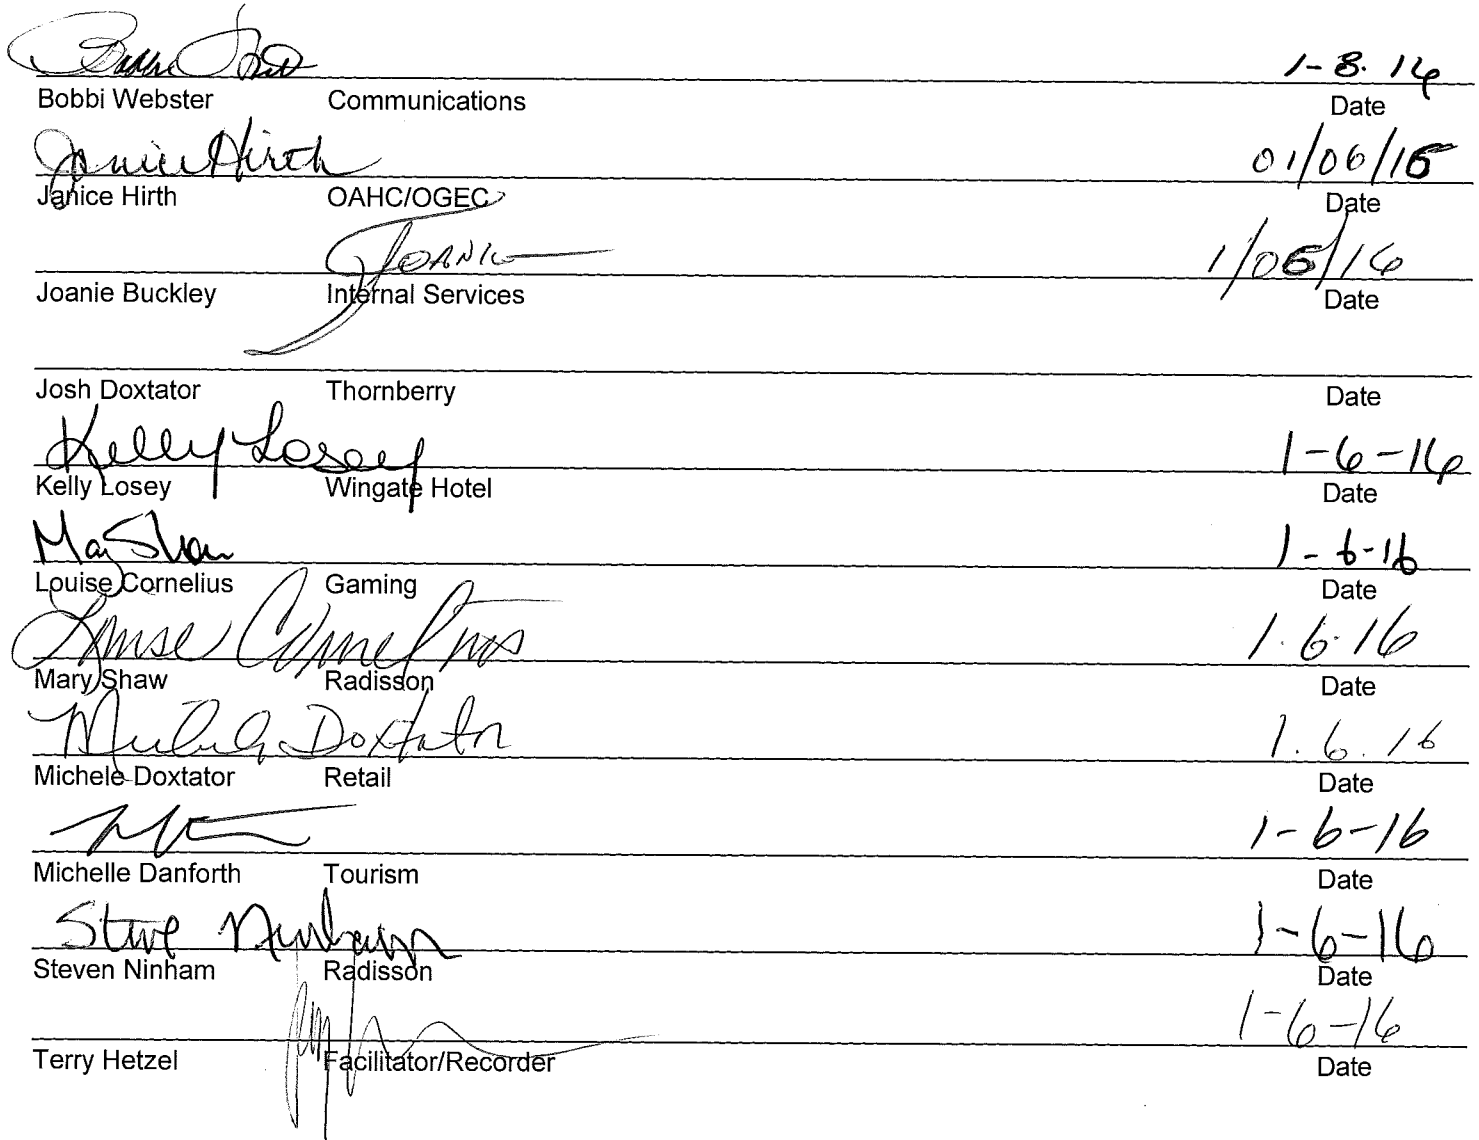 1-8-16
Bobbi Webster Communications Date
Janice Hirth 01/06/16
Janice Hirth OAHC/OGEC Date
Joanie 1/06/16
Joanie Buckley Internal Services Date
Josh Doxtator Thornberry Date
Kelly Losey 1-6-16
Kelly Losey Wingate Hotel Date
Mary Shaw 1-6-16
Louise Cornelius Gaming Date
Louise Cornelius 1.6.16
Mary Shaw Radisson Date
Michele Doxtator 1.6.16
Michele Doxtator Retail Date
1-6-16
Michelle Danforth Tourism Date
Steve Ninham 1-6-16
Steven Ninham Radisson Date
1-6-16
Terry Hetzel Facilitator/Recorder Date